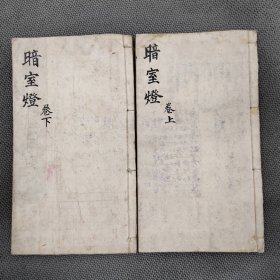 暗室燈
卷上
暗室燈
卷下